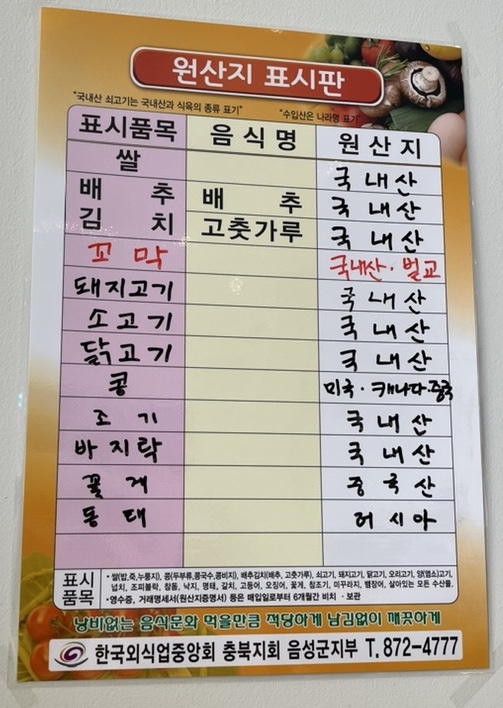 원산지 표시판
"국내산 쇠고기는 국내산과 식육의 종류 표기" "수입산은 나라명 표기"
표시품목 음식명 원산지
쌀 국내산
배추김치 배추 국내산
고춧가루 국내산
꼬막 국내산·벌교
돼지고기 국내산
소고기 국내산
닭고기 국내산
콩 미국·캐나다·중국
조기 국내산
바지락 국내산
꽃게 중국산
동태 러시아
표시품목
·쌀(밥,죽,누룽지), 콩(두부류,콩국수,콩비지), 배추김치(배추, 고춧가루), 쇠고기, 돼지고기, 닭고기, 오리고기, 양(염소)고기,
넙치, 조피볼락, 참돔, 낙지, 명태, 갈치, 고등어, 오징어, 꽃게, 참조기, 미꾸라지, 뱀장어, 살아있는 모든 수산물,
·영수증, 거래명세서(원산지증명서) 등은 매입일로부터 6개월간 비치·보관
낭비없는 음식문화 먹을만큼 적당하게 남김없이 깨끗하게
한국외식업중앙회 충북지회 음성군지부 T.872-4777